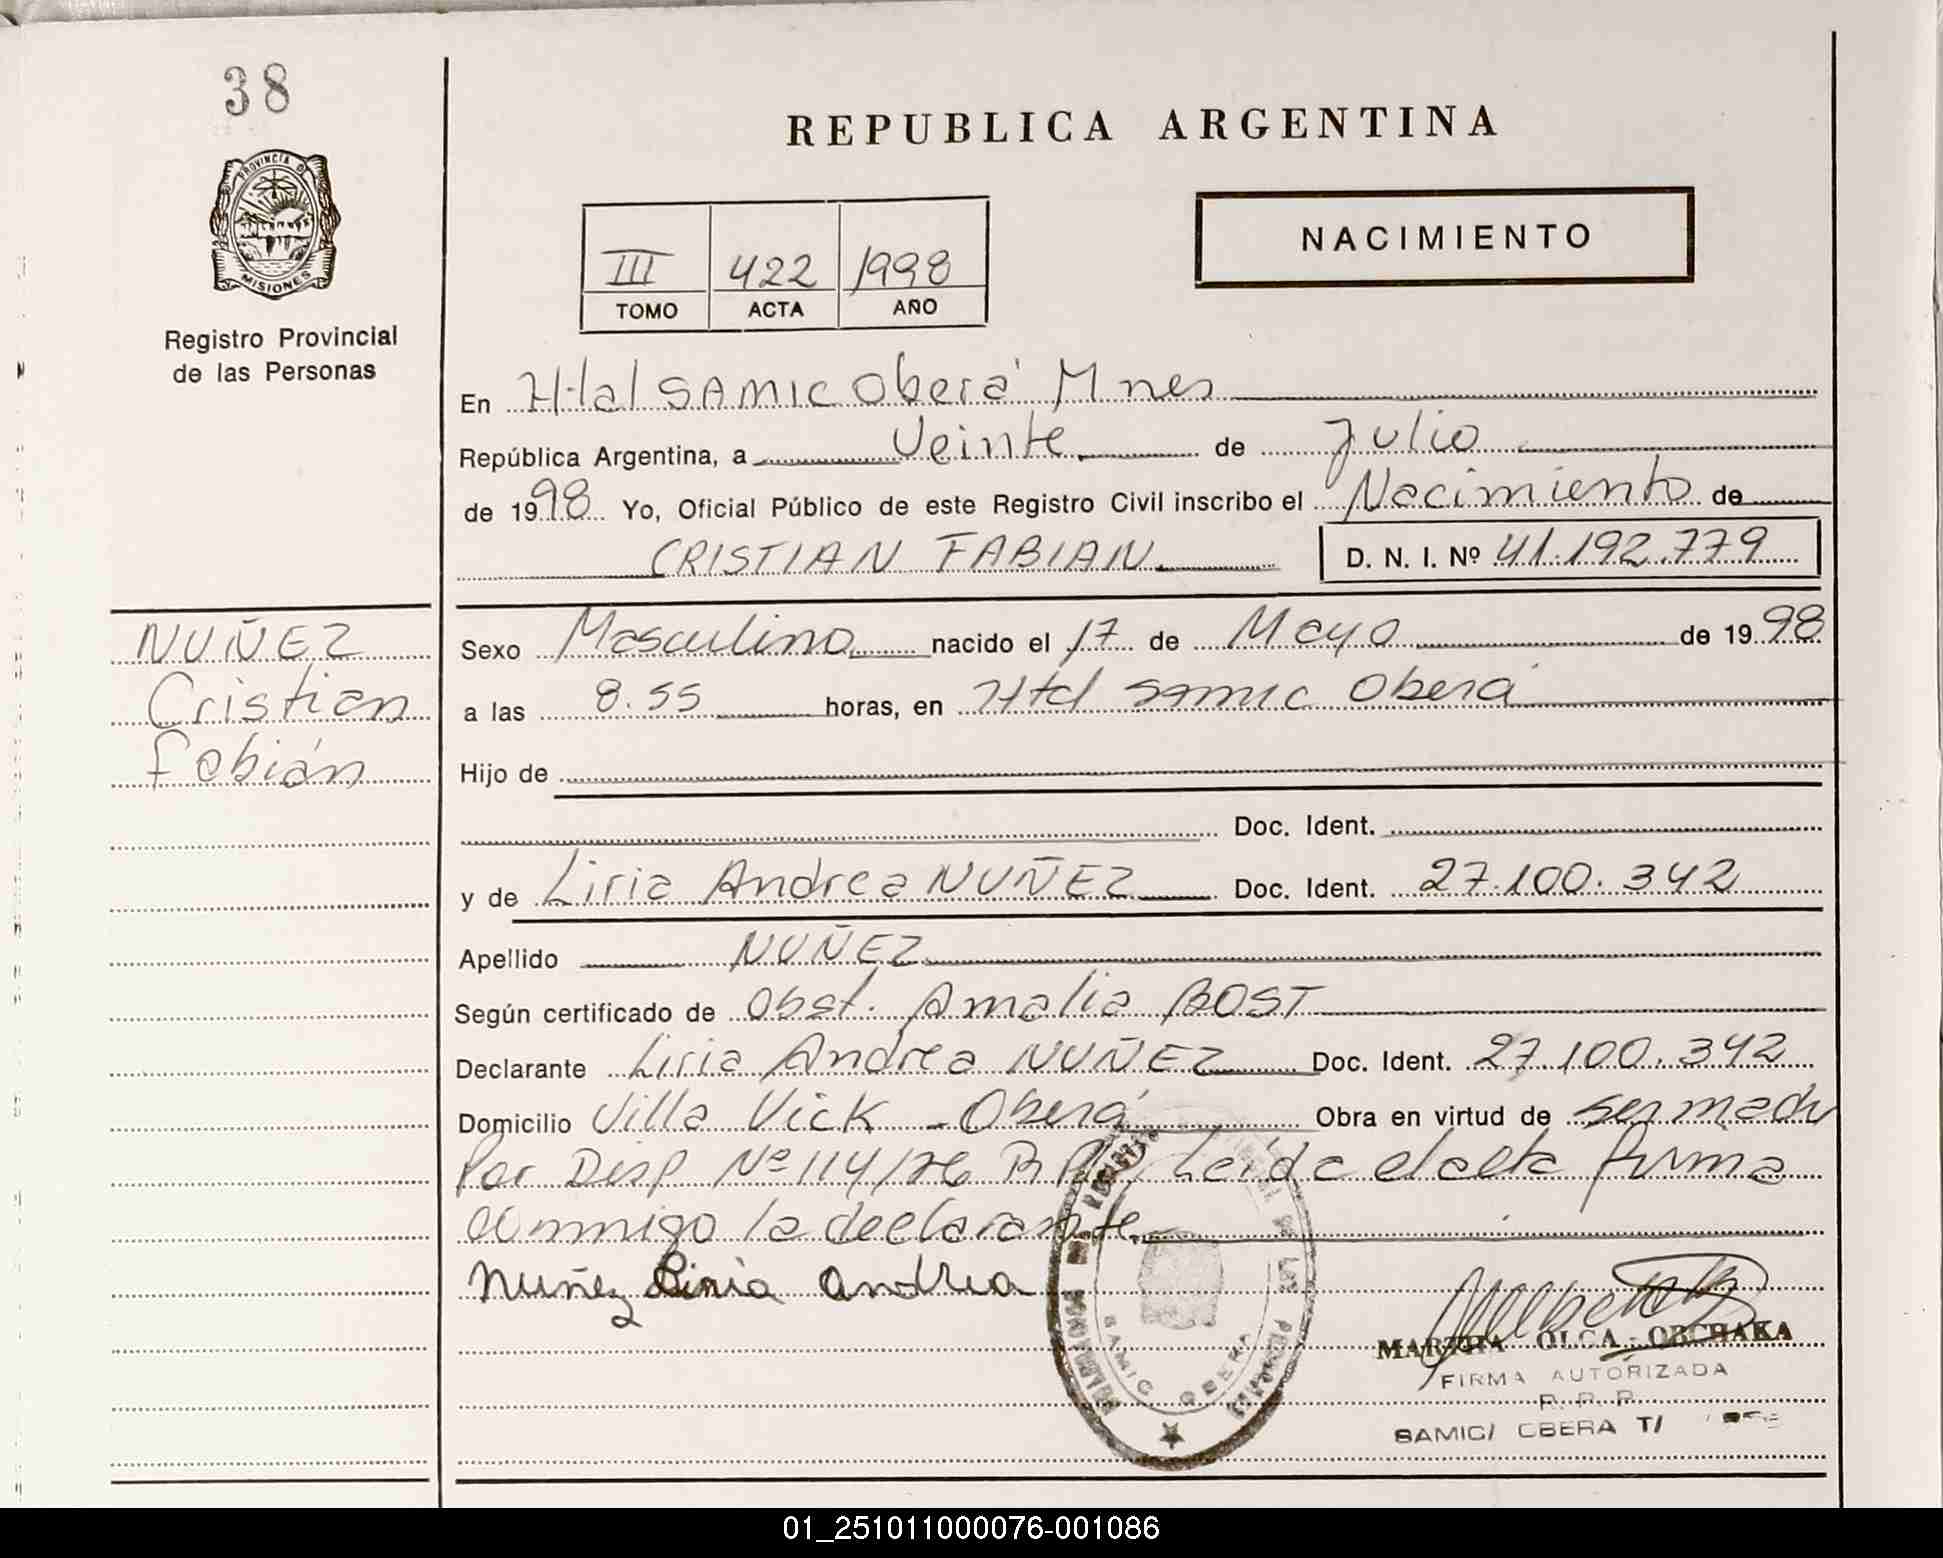 38
PROVINCIA DE
MISIONES
Registro Provincial
de las Personas
REPUBLICA ARGENTINA
NACIMIENTO
III 422 1998
TOMO ACTA AÑO
En Htal SAMIC Oberá Mnes
República Argentina, a Veinte de Julio
de 1998 Yo, Oficial Público de este Registro Civil inscribo el Nacimiento de
CRISTIAN FABIAN D. N. I. Nº 41.192.779
NUÑEZ
Cristian
Fabián
Sexo Masculino nacido el 17 de Mayo de 1998
a las 8.55 horas, en Htal SAMIC Oberá
Hijo de
Doc. Ident.
y de Liria Andrea NUÑEZ Doc. Ident. 27.100.342
Apellido NUÑEZ
Según certificado de Obst. Amalia BOST
Declarante Liria Andrea NUÑEZ Doc. Ident. 27.100.342
Domicilio Villa Vick - Oberá Obra en virtud de ser madre
Por Disp Nº 114/76 Leída el acta firma
conmigo la declarante
Nuñez Liria Andrea
SAMIC OBERA
MARTHA OLGA OBCHAKA
FIRMA AUTORIZADA
R. P. P.
SAMIC/ OBERA T/
01_251011000076-001086